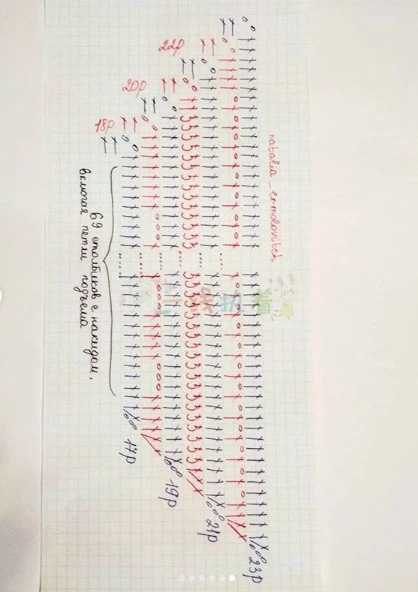 22р
20р
18р
natalia_ermolovitch
69 столбиков с накидом,
включая петли подъема
17р
19р
21р
23р